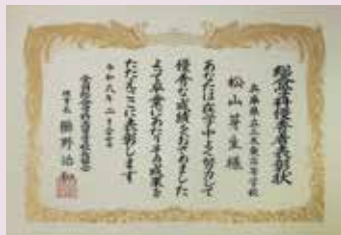 総合学科優秀賞表彰状
兵庫県立三木東高等学校
松山芽生 様
あなたは在学中よく努力して
優秀な成績をおさめました
よって卒業にあたりその成果を
たたえここに表彰します
令和六年二月
全国総合学科高等学校長協会
理事長